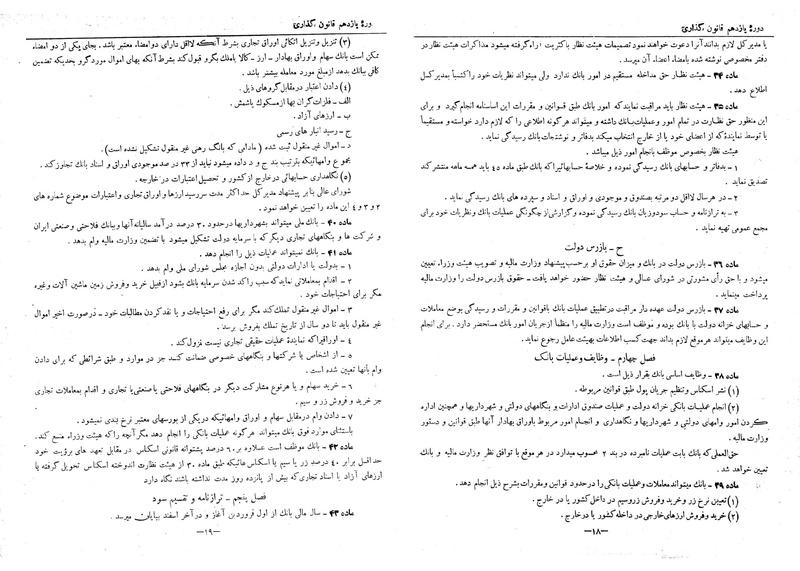 دورهٔ یازدهم قانون گذاری
یا مدیر کل لازم بدانند آنرا دعوت خواهند نمود تصمیمات هیئت نظار با کثریت آراء گرفته میشود مذاکرات هیئت نظار در
دفتر مخصوص نوشته شده بامضاء اعضاء آن میرسد.
ماده ۳۴ - هیئت نظار حق مداخله مستقیم در امور بانک ندارد ولی میتواند نظریات خود را کتباً بمدیر کل
اطلاع دهد.
ماده ۳۵ - هیئت نظار باید مراقبت نماید که امور بانک طبق قوانین و مقررات این اساسنامه انجام گیرد و برای
این منظور حق نظارت در تمام امور وعملیات بانک داشته و میتواند هرگونه اطلاعی را که لازم دارد خواسته و مستقیماً
یا توسط نماینده که از اعضای خود یا از خارج انتخاب میکند بدفاتر و نوشتجات بانک رسیدگی نماید.
هیئت نظار بخصوص موظف بانجام امور ذیل میباشد.
۱ - بدفاتر و حسابهای بانک رسیدگی نموده و خلاصهٔ حسابهائیرا که بانک طبق ماده ۴۵ باید همه ماهه منتشر کند
تصدیق نماید.
۲ - در هرسال لااقل دو مرتبه بصندوق و موجودی و اوراق و اسناد و سپرده های بانک رسیدگی نماید.
۳ - به ترازنامه و حساب سود وزیان بانک رسیدگی نموده و گزارشی از چگونگی عملیات بانک و نظریات خود برای
مجمع عمومی تهیه نماید.
ح - بازرس دولت
ماده ۳۶ - بازرس دولت در بانک و میزان حقوق او برحسب پیشنهاد وزارت مالیه و تصویب هیئت وزراء تعیین
میشود و با حق رأی مشورتی در شورای عالی و هیئت نظار حضور خواهد یافت - حقوق بازرس دولت را وزارت مالیه
پرداخت مینماید.
ماده ۳۷ - بازرس دولت عهده دار مراقبت در تطبیق عملیات بانک با قوانین و مقررات و رسیدگی بوضع معاملات
و حسابهای خزانه دولت با بانک بوده و موظف است وزارت مالیه را منظماً از جریان امور بانک مستحضر دارد. برای انجام
این وظایف میتواند هرموقع لازم بداند جهت کسب اطلاعات بهیئت عامل رجوع نماید.
فصل چهارم - وظایف وعملیات بانک
ماده ۳۸ - وظایف اساسی بانک بقرار ذیل است.
(۱) نشر اسکناس وتنظیم جریان پول طبق قوانین مربوطه.
(۲) انجام عملیات بانکی خزانه دولت و عملیات صندوق ادارات و بنگاههای دولتی و شهرداریها و همچنین اداره
کردن امور وامهای دولتی و شهرداریها و نگاهداری و انجام امور مربوط باوراق بهادار آنها طبق قوانین و دستور
وزارت مالیه.
حق‌العملی که بانک بابت عملیات نامبرده در بند ۲ محسوب میدارد در هر موقع با توافق نظر وزارت مالیه و بانک
تعیین خواهد شد.
ماده ۳۹ - بانک میتواند معاملات وعملیات بانکی را در حدود قوانین و مقررات بشرح ذیل انجام دهد.
(۱) تعیین نرخ زر وخرید وفروش زروسیم در داخل کشور یا در خارج.
(۲) خرید و فروش ارزهای خارجی در داخله کشور یا در خارج.
-۱۸-
دورهٔ یازدهم قانون گذاری
(۳) تنزیل وتنزیل اتکائی اوراق تجاری بشرط آنکه لااقل دارای دوامضاء معتبر باشد. بجای یکی از دو امضاء
ممکن است بانک سهام واوراق بهادار - ارز - کالا یا ملک بگرو قبول کند بشرط آنکه بهای اموال مورد گرو بحدیکه تضمین
کافی ببانک بدهد از مبلغ مورد معامله بیشتر باشد.
(۴) دادن اعتبار در مقابل گروهای ذیل.
الف - فلزات گران بها از مسکوک یا شمش.
ب - ارزهای آزاد.
ج - رسید انبار های رسمی
د - اموال غیر منقول ثبت شده (مادامی که بانک رهنی غیر منقول تشکیل نشده است).
مجموع وامهائیکه بترتیب بند ج و د داده میشود نباید از ۳۳ در صد موجودی اوراق و اسناد بانک تجاوز کند.
(۵) نگاهداری حسابهائی در خارج از کشور و تحصیل اعتبارات در خارجه.
شورای عالی بنا بر پیشنهاد مدیر کل حداکثر مدت سررسید ارزها و اوراق تجاری و اعتبارات موضوع شماره های
۲ و ۳ و ۴ این ماده را تعیین خواهد نمود.
ماده ۴۰ - بانک ملی میتواند بشهرداریها در حدود ۳۰ درصد درآمد سالیانه آنها و ببانک فلاحتی وصنعتی ایران
و شرکت ها و بنگاههای تجاری دیگر که با سرمایه دولت تشکیل میشود با تضمین وزارت مالیه وام بدهد.
ماده ۴۱ - بانک نمیتواند عملیات ذیل را انجام دهد.
۱ - بدولت یا ادارات دولتی بدون اجازه مجلس شورای ملی وام بدهد.
۲ - اقدام بمعاملاتی نماید که سبب راکد شدن سرمایه بانک بشود از قبیل خرید وفروش زمین ماشین آلات وغیره
مگر برای احتیاجات خود.
۳ - اموال غیر منقول تملک کند مگر برای رفع احتیاجات و یا نقد کردن مطالبات خود - درصورت اخیر اموال
غیر منقول باید تا دو سال از تاریخ تملک بفروش برسد.
۴ - اوراقیرا که نماینده عملیات حقیقی تجاری نیست نزول کند.
۵ - از اشخاص یا شرکتها و بنگاههای خصوصی ضمانت کند جز در موارد و طبق شرائطی که برای دادن
وام بآنها تعیین شده است.
۶ - خرید سهام و یا هرنوع مشارکت دیگر در بنگاههای فلاحتی یا صنعتی یا تجاری و اقدام بمعاملات تجاری
جز خرید و فروش زر و سیم.
۷ - دادن وام درمقابل سهام و اوراق وامهائیکه دریکی از بورسهای معتبر نرخ بندی نمیشود.
باستثنای موارد فوق بانک میتواند هرگونه عملیات بانکی را انجام دهد مگر آنچه را که هیئت وزراء منع کند.
ماده ۴۲ - بانک موظف است علاوه بر ۶۰ درصد پشتوانه قانونی اسکناس در مقابل تعهد های برؤیت خود
حداقل برابر ۴۰ درصد زر یا سیم یا اسکناس هائیکه طبق ماده ۳۰ از هیئت نظارت اندوخته اسکناس تحویل گرفته یا
ارزهای آزاد یا اسناد تجاری که بیش از پانزده روز مدت نداشته باشند نگاه دارد
فصل پنجم - ترازنامه و تقسیم سود
ماده ۴۳ - سال مالی بانک از اول فروردین آغاز و در آخر اسفند بپایان میرسد.
-۱۹-